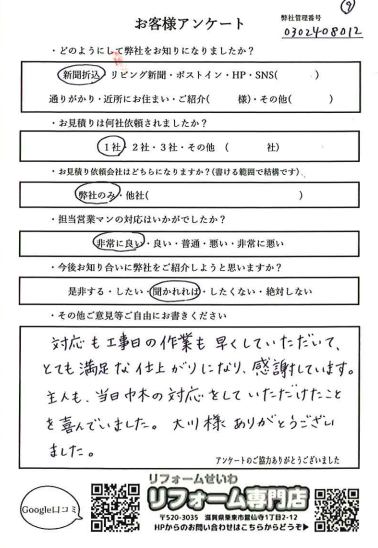 ⑨
お客様アンケート
弊社管理番号
0302408012
・どのようにして弊社をお知りになりましたか？
新聞折込・リビング新聞・ポストイン・HP・SNS(　　　)
通りがかり・近所にお住まい・ご紹介(　　　様)・その他(　　　)
・お見積りは何社依頼されましたか？
1社・2社・3社・その他　(　　　社)
・お見積り依頼会社はどちらになりますか？(書ける範囲で結構です)
弊社のみ・他社(　　　)
・担当営業マンの対応はいかがでしたか？
非常に良い・良い・普通・悪い・非常に悪い
・今後お知り合いに弊社をご紹介しようと思いますか？
是非する・したい・聞かれれば・したくない・絶対しない
・その他ご意見等ご自由にお書きください
対応も工事日の作業も早くしていただいて、
とても満足な仕上がりになり、感謝しています。
主人も、当日中木の対応をしていただけたこと
を喜んでいました。大川様ありがとうござい
ました。
アンケートのご協力ありがとうございました
Google口コミ
リフォームせいわ
リフォーム専門店
〒520-3035　滋賀県栗東市霊仙寺1丁目2-12
HPからのお問い合わせはこちらからどうぞ▶